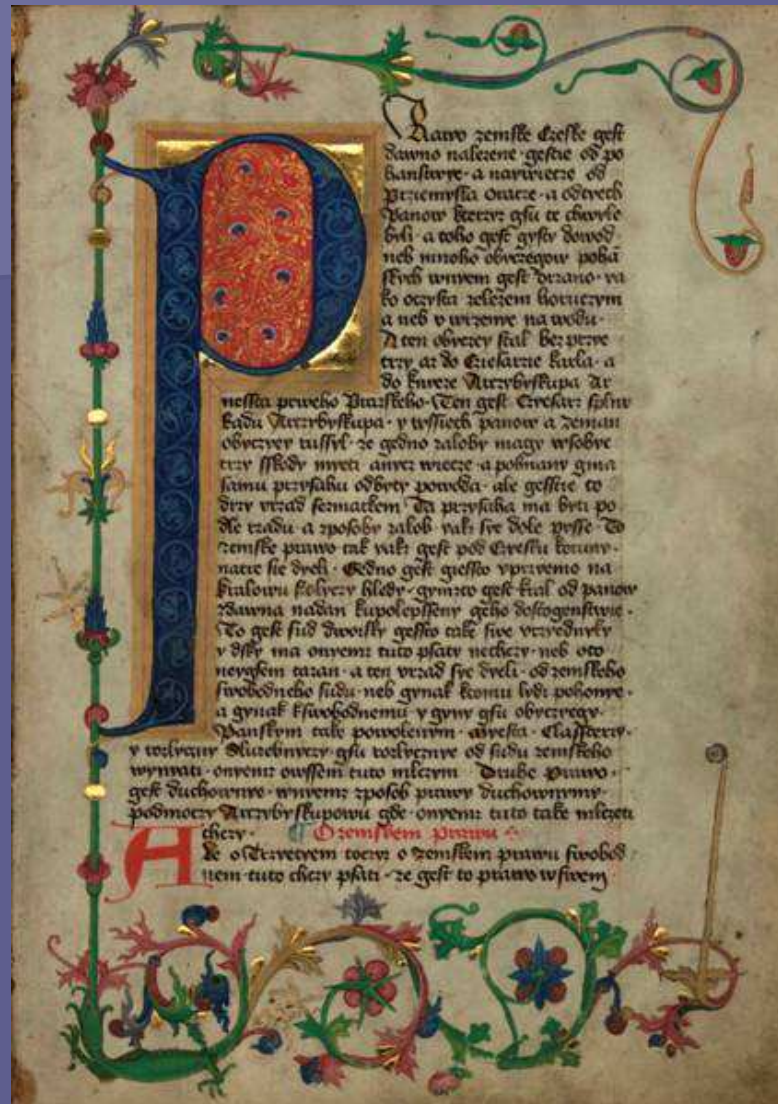 Prawo zemske Czeske gest
dawno nalezene · gestie od po
hanstwye · a naywiecze od
Prziemysla Oracze · a odtech
Panow kterzyz gsu te chwyle
byli · a toho gest gysty dowod
neb mnoho obyczegow pohā
skych wnyem gest drzano · ya
ko oczysta zelezem horuczym
a neb v wirzenye na wodu ·
A ten obyczey stal bez przye
trzy az do Cziesarzie karla · a
do knyeze Arczybyskupa Ar
nessta prweho Prazskeho · Ten gest Cyesarz splnu
Radu Arczybyskupa · y wssiech panow a zeman
obyczey tussyl · ze gedno zaloby magy wsobye
trzy sskody myeti anyez wiecze · a pohnany gma
samu przysahu odbyty powoda · ale gesstie to
drzy vrzad fermatkem Ta przysaha ma byti po
dle rzadu · a zposoby zalob yakz sye dole pysse · To
zemske prawo tak yakz gest pod Czesku korunu ·
natre sie dyeli · Gedno gest giessto vprziemo na
kralowu stolyczy hledy · gymzto gest kral od panow
zdawna nadan kupolepsseny geho dostogenstwie ·
To gest sud dworsky gessto take swe vrzednyky
y dsky ma onyemz tuto psaty nechczy · neb oto
neygsem tazan · a ten vrzad sye dyeli · od zemskeho
swobodneho sudu · neb gynak ktomu lydi pohonye ·
a gynak kswobodnemu y gyny gsu obyczegy ·
Panskym take powolenym · myesta · Classtery ·
y rozlyczny Sluzebnyczy · gsu rozlycznye od sudu zemskeho
wynyati · onyemz owssem tuto mlczym Druhe Prawo ·
gest duchownye · wnyemz zposob prawy duchownymy ·
podmoczy Arczybyskupowu gde · onyemz tuto take mlczeti
chczy · O zemskem prawu
Ale o Trzyetyem toczyz o zemskem prawu swobod
nem · tuto chczy psati · ze gest to prawo wswem